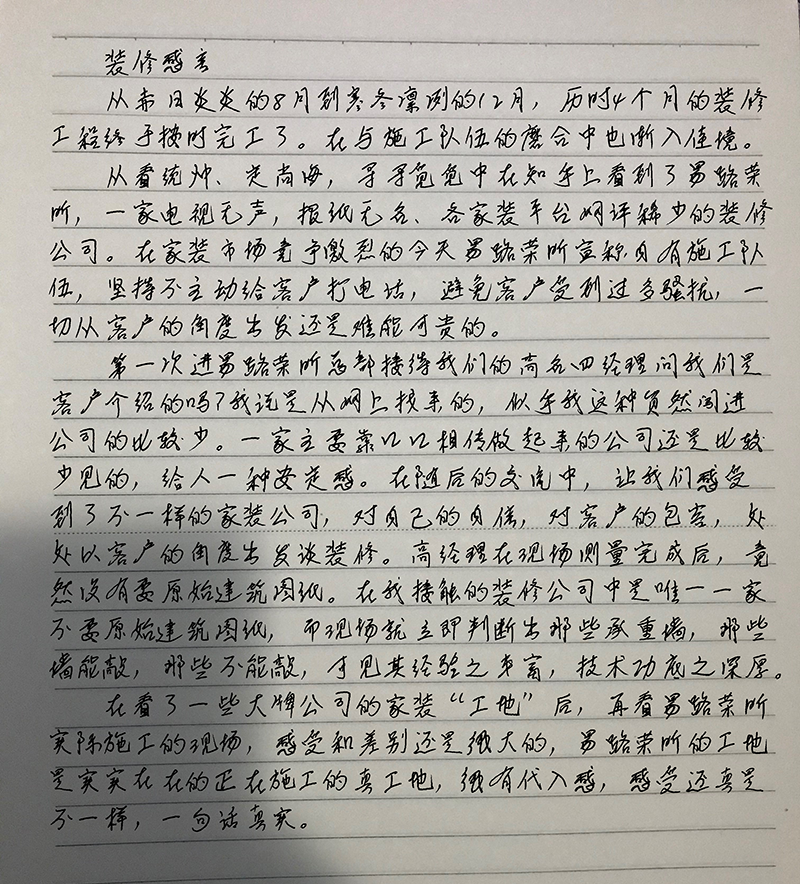 装修感言
从赤日炎炎的8月到寒冬凛冽的12月，历时4个月的装修
工程终于按时完工了。在与施工队伍的磨合中也渐入佳境。
从看统帅、定尚海，寻寻觅觅中在知乎上看到了易路荣
昕，一家电视无声，报纸无名、各家装平台网评稀少的装修
公司。在家装市场竞争激烈的今天易路荣昕宣称自有施工队
伍，坚持不主动给客户打电话，避免客户受到过多骚扰，一
切从客户的角度出发还是难能可贵的。
第一次进易路荣昕总部接待我们的高名四经理问我们是
客户介绍的吗？我说是从网上找来的，似乎我这种贸然闯进
公司的比较少。一家主要靠口口相传做起来的公司还是比较
少见的，给人一种安定感。在随后的交流中，让我们感受
到了不一样的家装公司，对自己的自信，对客户的包容，处
处以客户的角度出发谈装修。高经理在现场测量完成后，竟
然没有要原始建筑图纸。在我接触的装修公司中是唯一一家
不要原始建筑图纸，而现场就立即判断出那些承重墙，那些
墙能敲，那些不能敲，可见其经验之丰富，技术功底之深厚。
在看了一些大牌公司的家装“工地”后，再看易路荣昕
实际施工的现场，感受和差别还是很大的，易路荣昕的工地
是实实在在的正在施工的真工地，很有代入感，感受还真是
不一样，一句话真实。